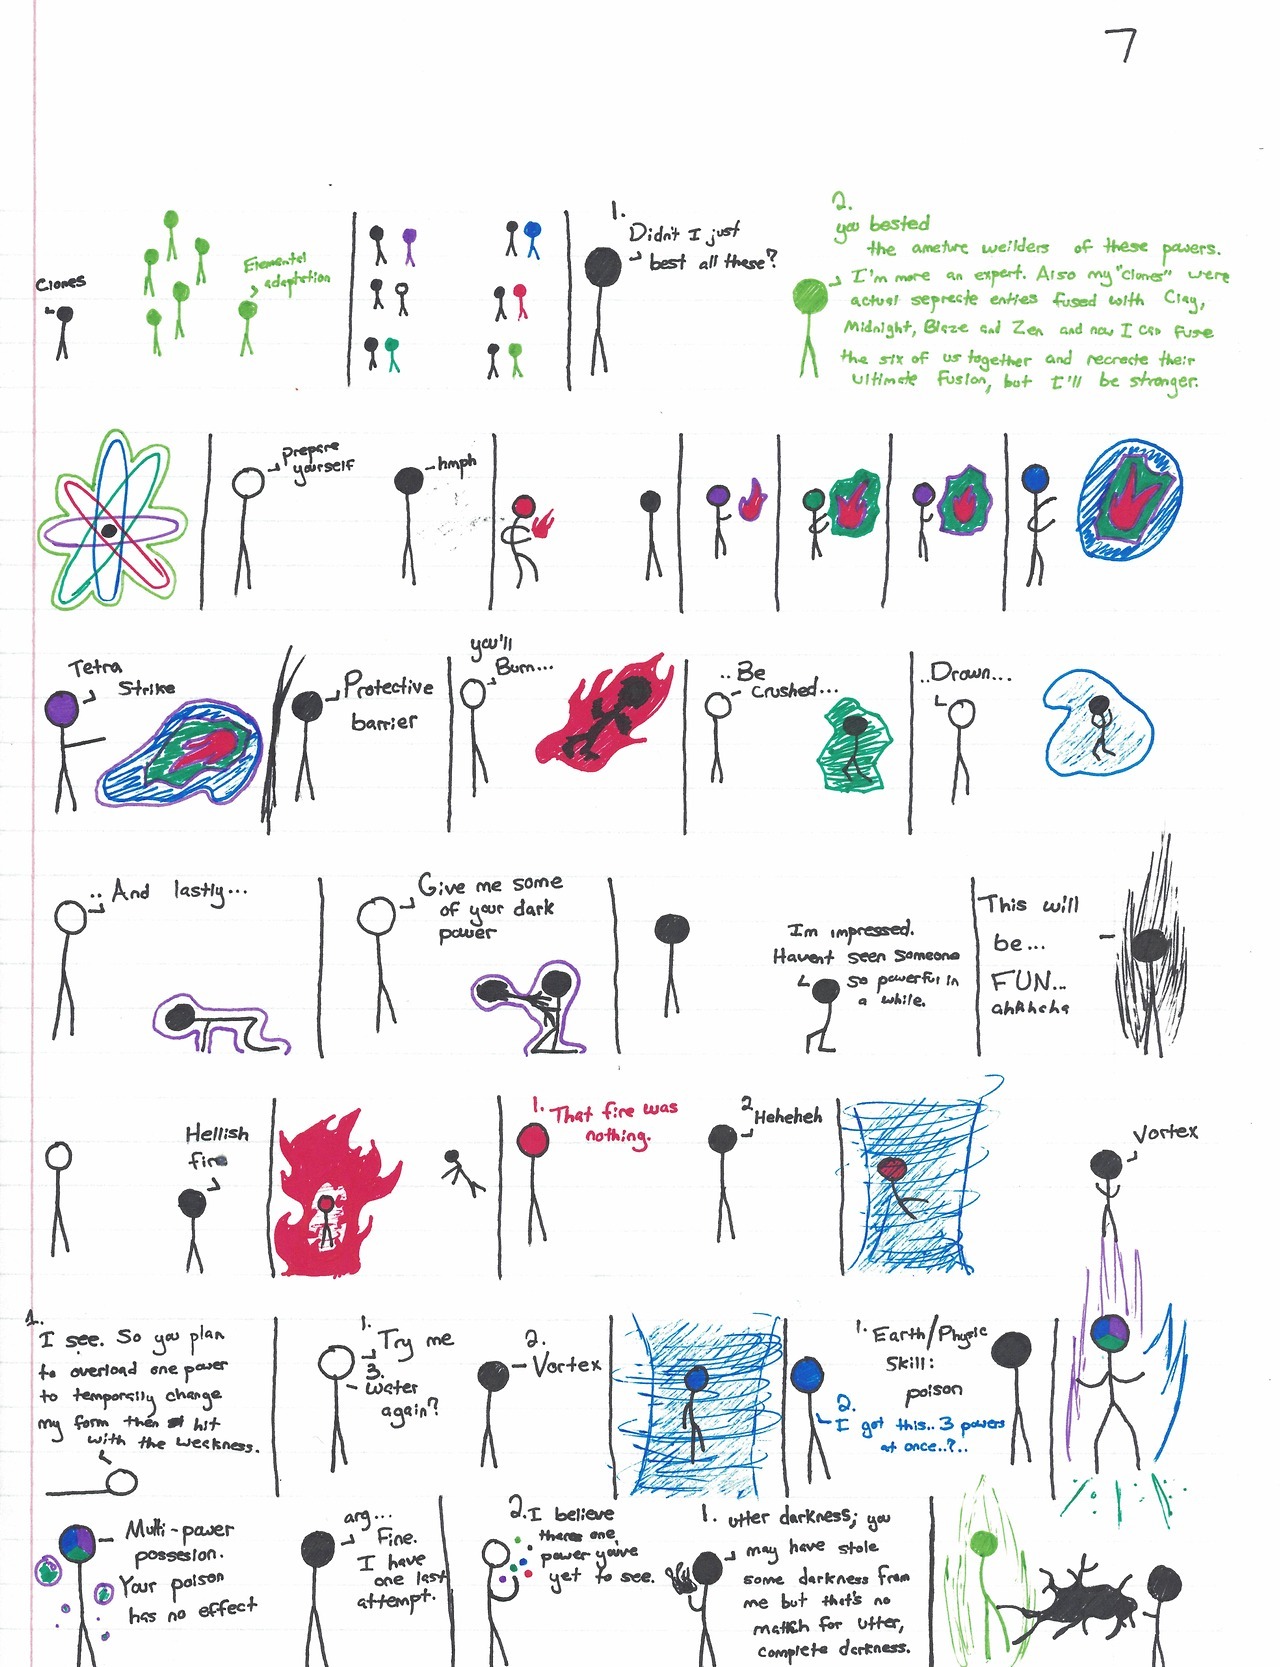 7
Clones
Elemental
adaptation
1.
Didn't I just
best all these?
2.
you bested
the ameture weilders of these powers.
I'm more an expert. Also my "clones" were
actual seprecte enties fused with Clay,
Midnight, Blaze and Zen and now I can fuse
the six of us together and recreate their
ultimate fusion, but I'll be stronger.
Prepare
yourself
hmph
Tetra
Strike
Protective
barrier
you'll
Burn...
..Be
crushed...
..Drown...
And lastly...
Give me some
of your dark
power
I'm impressed.
Havent seen someone
so powerful in
a while.
This will
be...
FUN...
ahhhaha
Hellish
fire
1. That fire was
nothing.
2.
Heheheh
Vortex
1.
I see. So you plan
to overload one power
to temporally change
my form then hit
with the weakness.
1.
Try me
3.
water
again?
2.
Vortex
1. Earth/Physic
Skill:
poison
2.
I got this.. 3 powers
at once..?..
Multi-power
possesion.
Your poison
has no effect
arg...
Fine.
I have
one last
attempt.
2. I believe
theres one
power you've
yet to see.
1. utter darkness; you
may have stole
some darkness from
me but that's no
match for utter,
complete darkness.